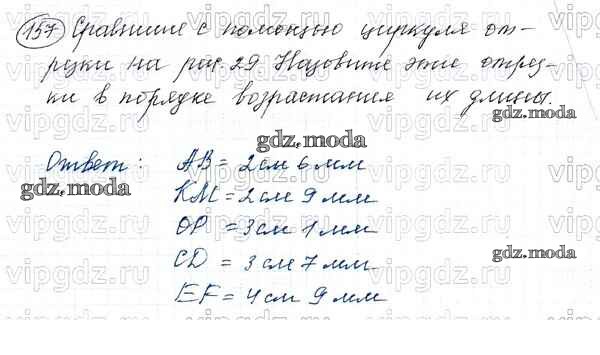 157 Сравните с помощью циркуля от-
резки на рис. 29 Назовите эти отрез-
ки в порядке возрастания их длины.
gdz.moda
Ответ: AB = 2 см 6 мм
gdz.moda
KM = 2 см 9 мм
OP = 3 см 1 мм
gdz.moda
CD = 3 см 7 мм
EF = 4 см 9 мм
gdz.moda
vipgdz.ru